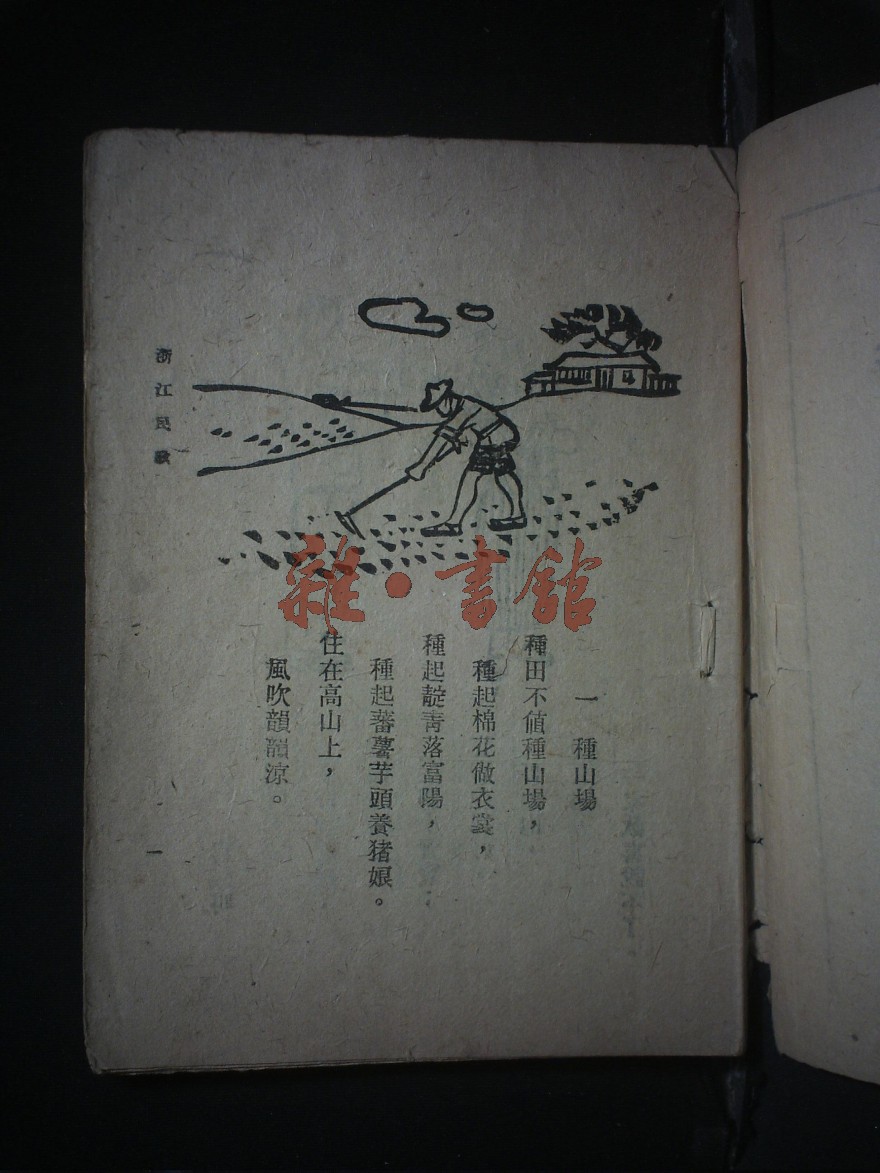 一　種山場
種田不值種山場，
種起棉花做衣裳，
種起靛青落富陽，
種起蕃薯芋頭養猪娘。
住在高山上，
風吹韻韻涼。
浙江民歌
一
雜·書舘